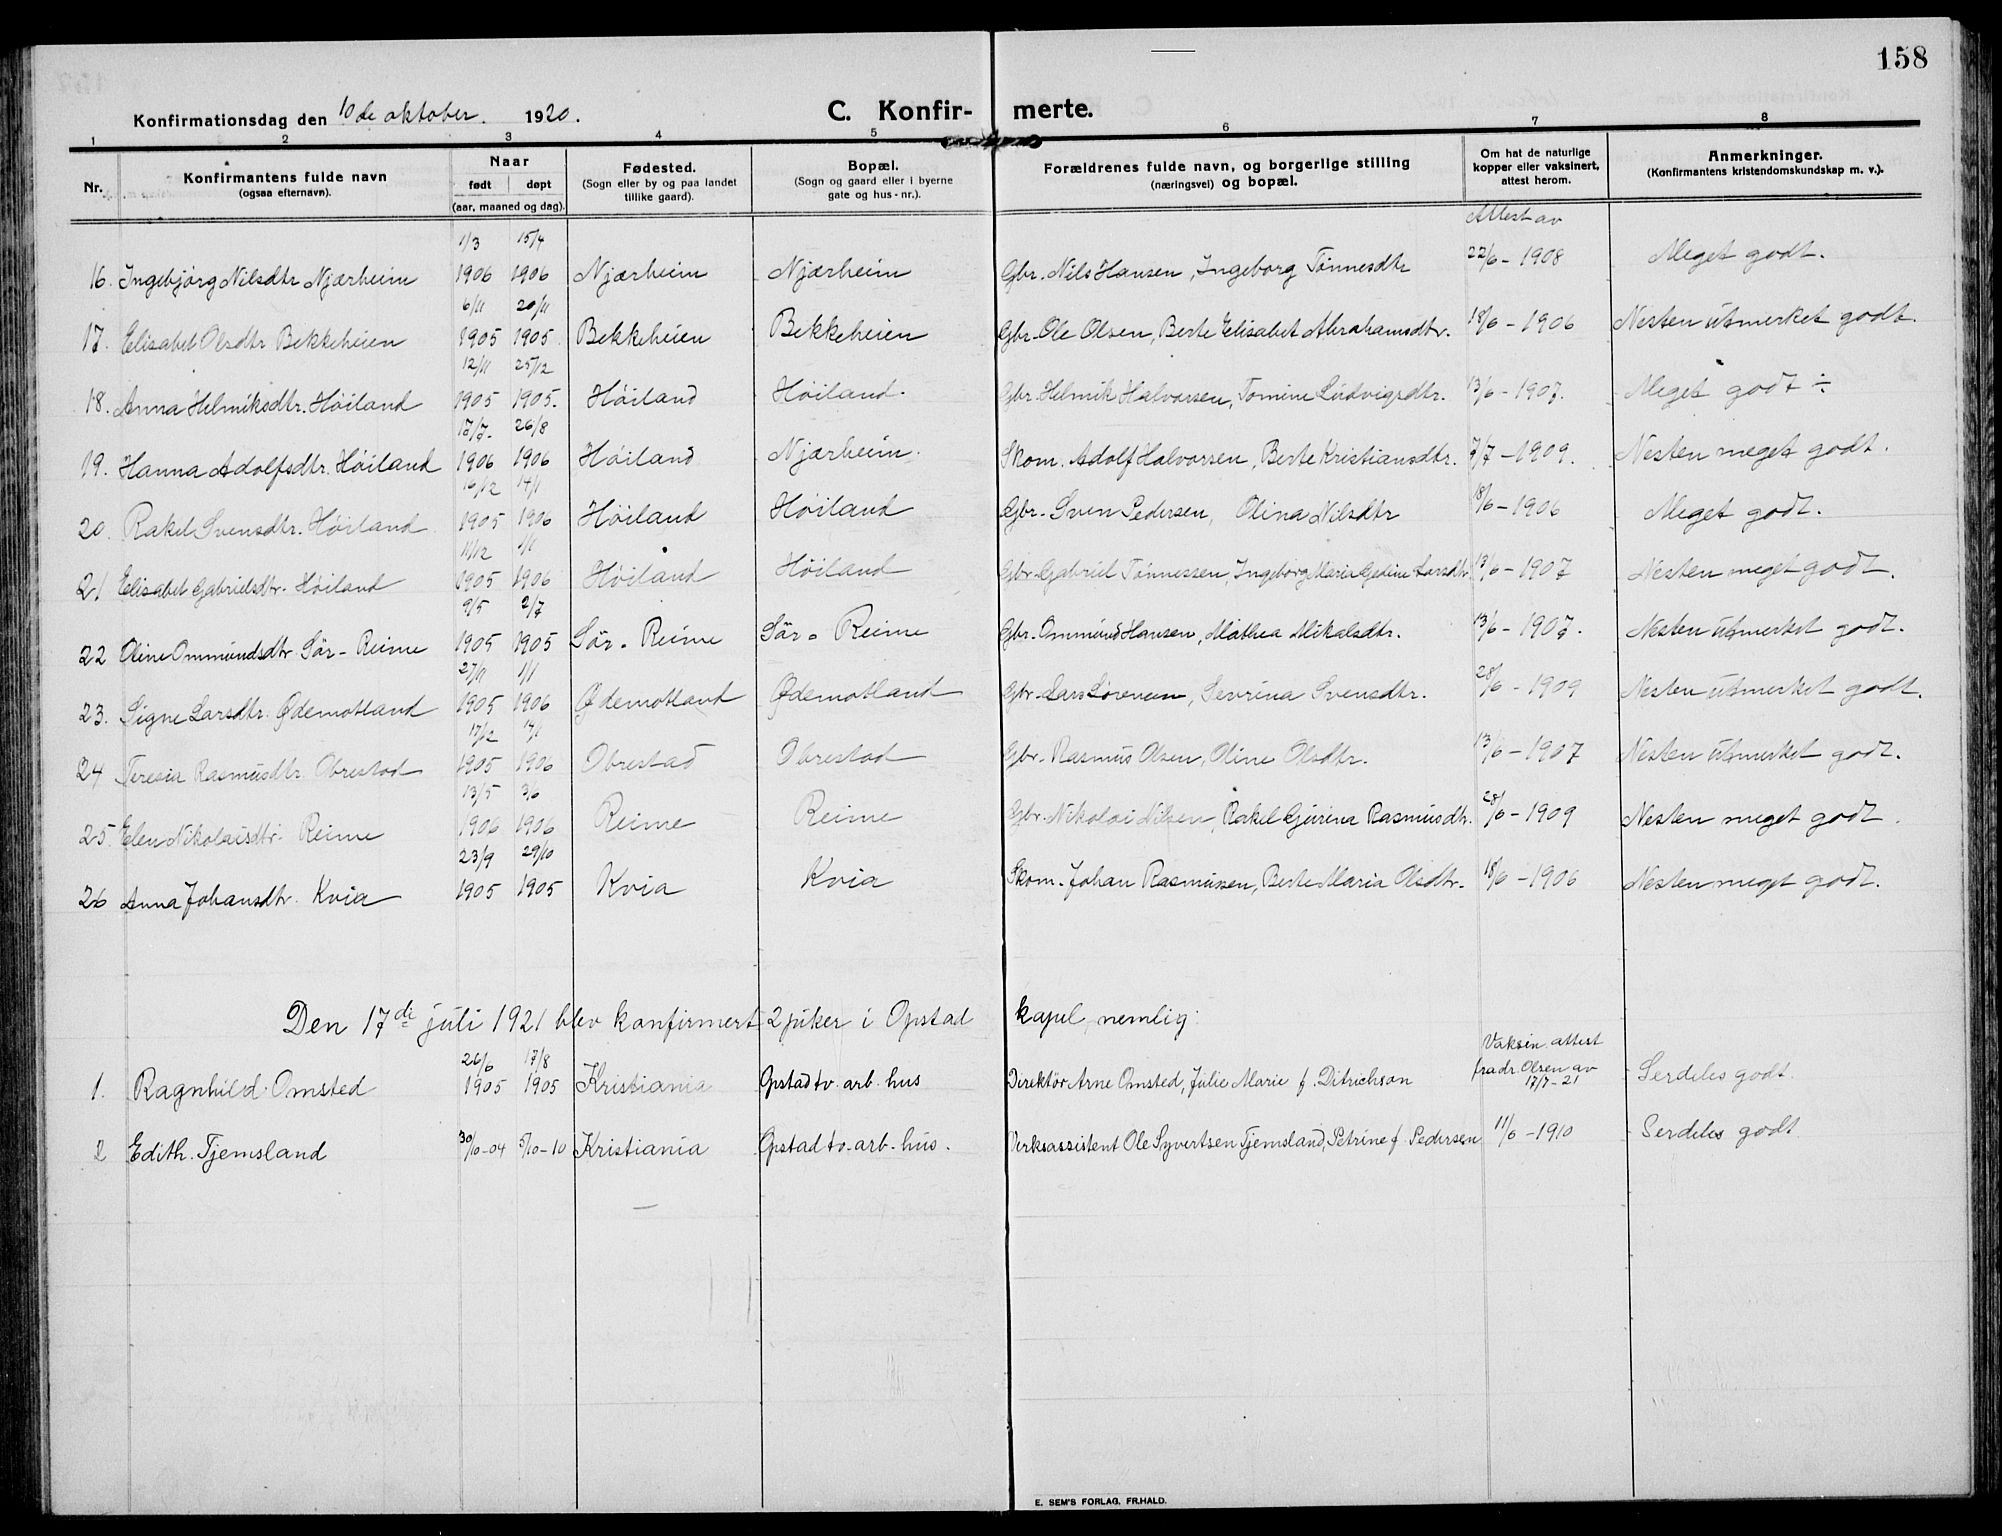 158
Konfirmationsdag den 10de oktober. 1920.
C. Konfir- merte.
1 2 3 4 5 6 7 8
Nr.
Konfirmantens fulde navn
(ogsaa efternavn).
Naar
født døpt
(aar, maaned og dag).
Fødested.
(Sogn eller by og paa landet
tillike gaard).
Bopæl.
(Sogn og gaard eller i byerne
gate og hus-nr.).
Forældrenes fulde navn, og borgerlige stilling
(næringsvei) og bopæl.
Om hat de naturlige
kopper eller vaksinert,
attest herom.
Anmerkninger.
(Konfirmantens kristendomskundskap m. v.).
Attest av
1/3 15/4
16. Ingebjörg Nilsdtr Njærheim 1906 1906 Njærheim Njærheim Gbr. Nils Hansen, Ingeborg Tönnesdtr 22/6 - 1908 Meget godt.
6/11 20/11
17. Elisabet Olsdtr Bekkeheien 1905 1905 Bekkeheien Bekkeheien Gbr. Ole Olsen, Berte Elisabet Abrahamsdtr. 18/6 - 1906 Nesten utmerket godt.
12/11 25/12
18. Anna Helmiksdtr. Höiland 1905 1905. Höiland Höiland. Gbr. Helmik Halvorsen, Tomine Ludvigsdtr. 13/6 - 1907. Meget godt ÷
17/7. 26/8
19. Hanna Adolfsdtr. Höiland 1906 1906 Höiland Njærheim. Skom. Adolf Halvorsen, Berte Kristiansdtr. 7/7 - 1909. Nesten meget godt.
16/12 14/1
20. Rakel Svensdtr. Höiland 1905 1906 Höiland Höiland Gbr. Sven Pedersen, Olina Nilsdtr 18/6 - 1906 Meget godt.
11/12 1/1
21 Elisabet Gabrielsdtr. Höiland 1905 1906 Höiland Höiland Gbr. Gabriel Tönnessen, Ingeborg Marie Gedine Larsdtr 13/6 - 1907 Nesten meget godt.
9/5 2/7
22 Oline Ommundsdtr. Sör-Reime 1905 1905 Sör-Reime Sör-Reime Gbr. Ommund Hansen, Mathea Mikalsdtr. 13/6 - 1907. Nesten utmerket godt.
27/11 1/1
23. Signe Larsdtr. Ødemotland 1905 1906 Ødemotland Ødemotland Gbr. Lars Sörensen, Sevrina Svensdtr. 28/6 - 1909 Nesten utmerket godt.
17/12 14/1
24 Teresia Rasmusdtr. Obrestad 1905 1906 Obrestad Obrestad Gbr. Rasmus Olsen, Oline Olsdtr. 13/6 - 1907 Nesten utmerket godt.
13/5 3/6
25. Elen Nikolaisdtr. Reime 1906 1906 Reime Reime Gbr. Nikolai Nilsen, Rakel Gjurina Rasmusdtr. 28/6 - 1909 Nesten meget godt.
23/9 29/10
26 Anna Johansdtr. Kvia 1905 1905 Kvia Kvia Skom. Johan Rasmussen, Berte Maria Olsdtr. 18/6 - 1906 Nesten meget godt.
Den 17de juli 1921 blev konfirmert 2 piker i Opstad kapel, nemlig:
26/6 17/8 Vaksin. attest
1. Ragnhild Omsted 1905 1905 Kristiania Opstad tv. arb. hus Direktör Arne Omsted, Julie Marie f. Ditrichson fra dr. Olsen av Serdeles godt.
17/7-21
2 Edith Tjemsland 30/10-04 5/10-10 Kristiania Opstad tv. arb. hus. Verksassistent Ole Syvertsen Tjemsland, Petrine f. Pedersen 11/6 - 1910 Serdeles godt
E. SEM'S FORLAG. FR.HALD.